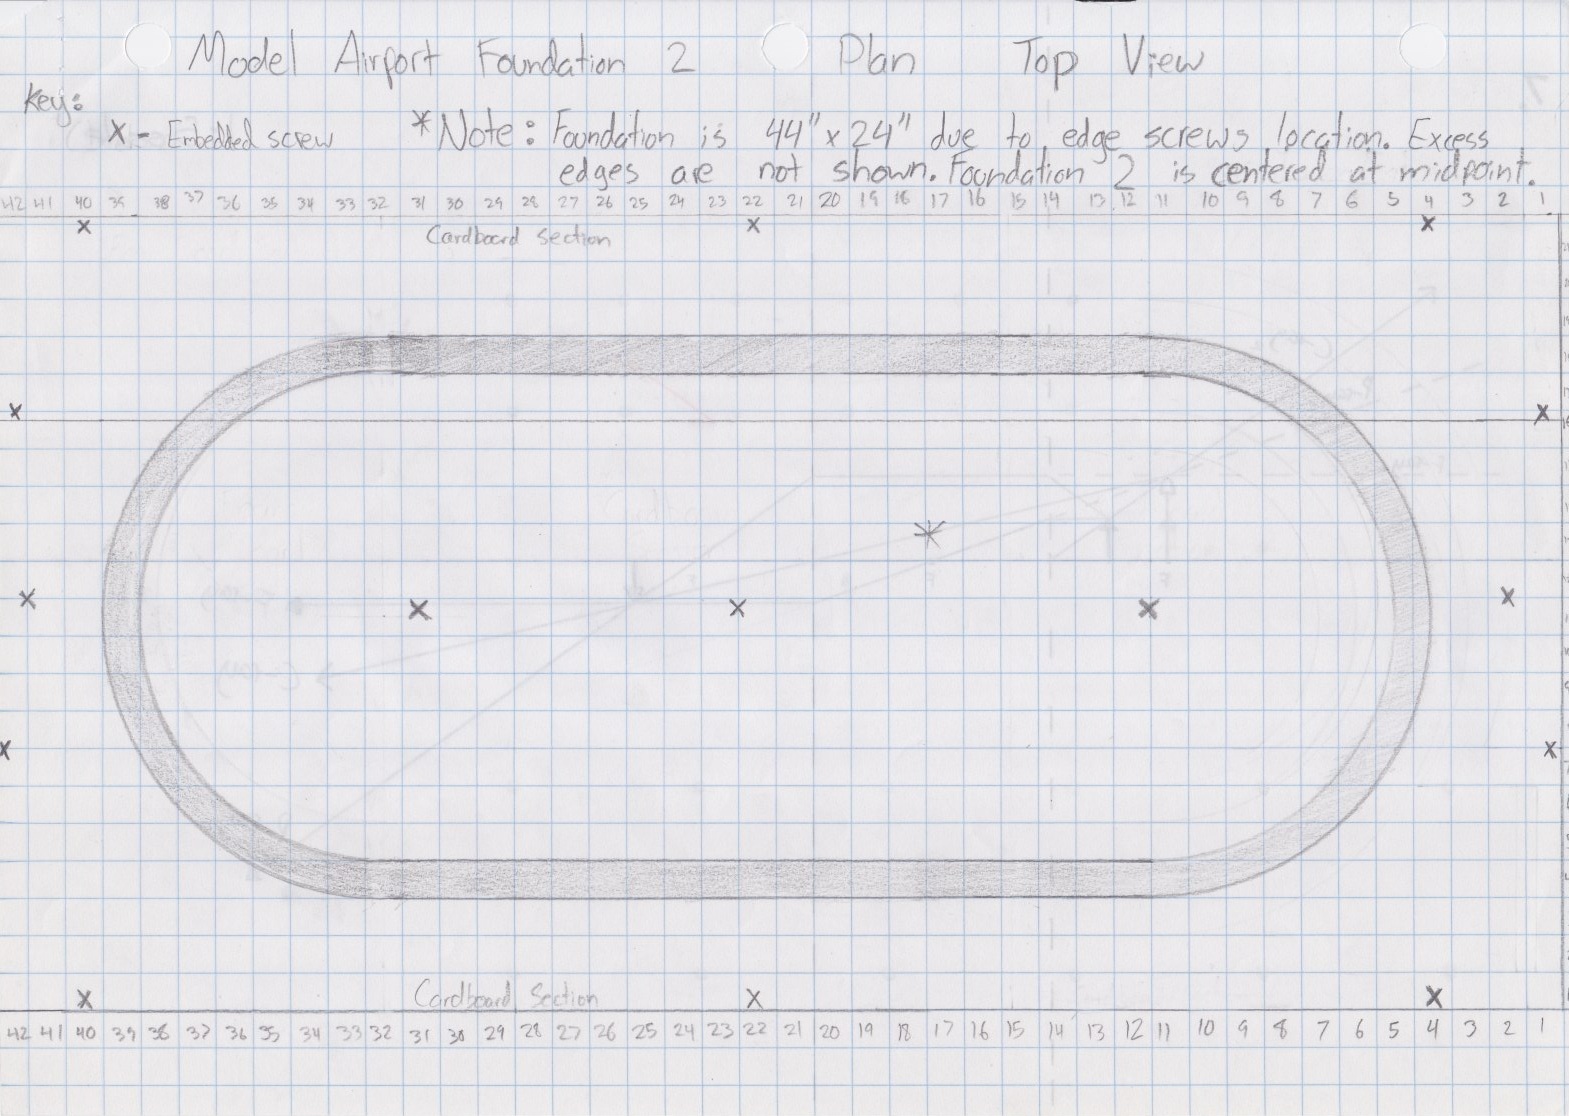 Model Airport Foundation 2 Plan Top View
Key:
X - Embedded screw
*Note: Foundation is 44" x 24" due to edge screws location. Excess
edges are not shown. Foundation 2 is centered at midpoint.
42 41 40 39 38 37 36 35 34 33 32 31 30 29 28 27 26 25 24 23 22 21 20 19 18 17 16 15 14 13 12 11 10 9 8 7 6 5 4 3 2 1
Cardboard Section
Cardboard Section
42 41 40 39 38 37 36 35 34 33 32 31 30 29 28 27 26 25 24 23 22 21 20 19 18 17 16 15 14 13 12 11 10 9 8 7 6 5 4 3 2 1